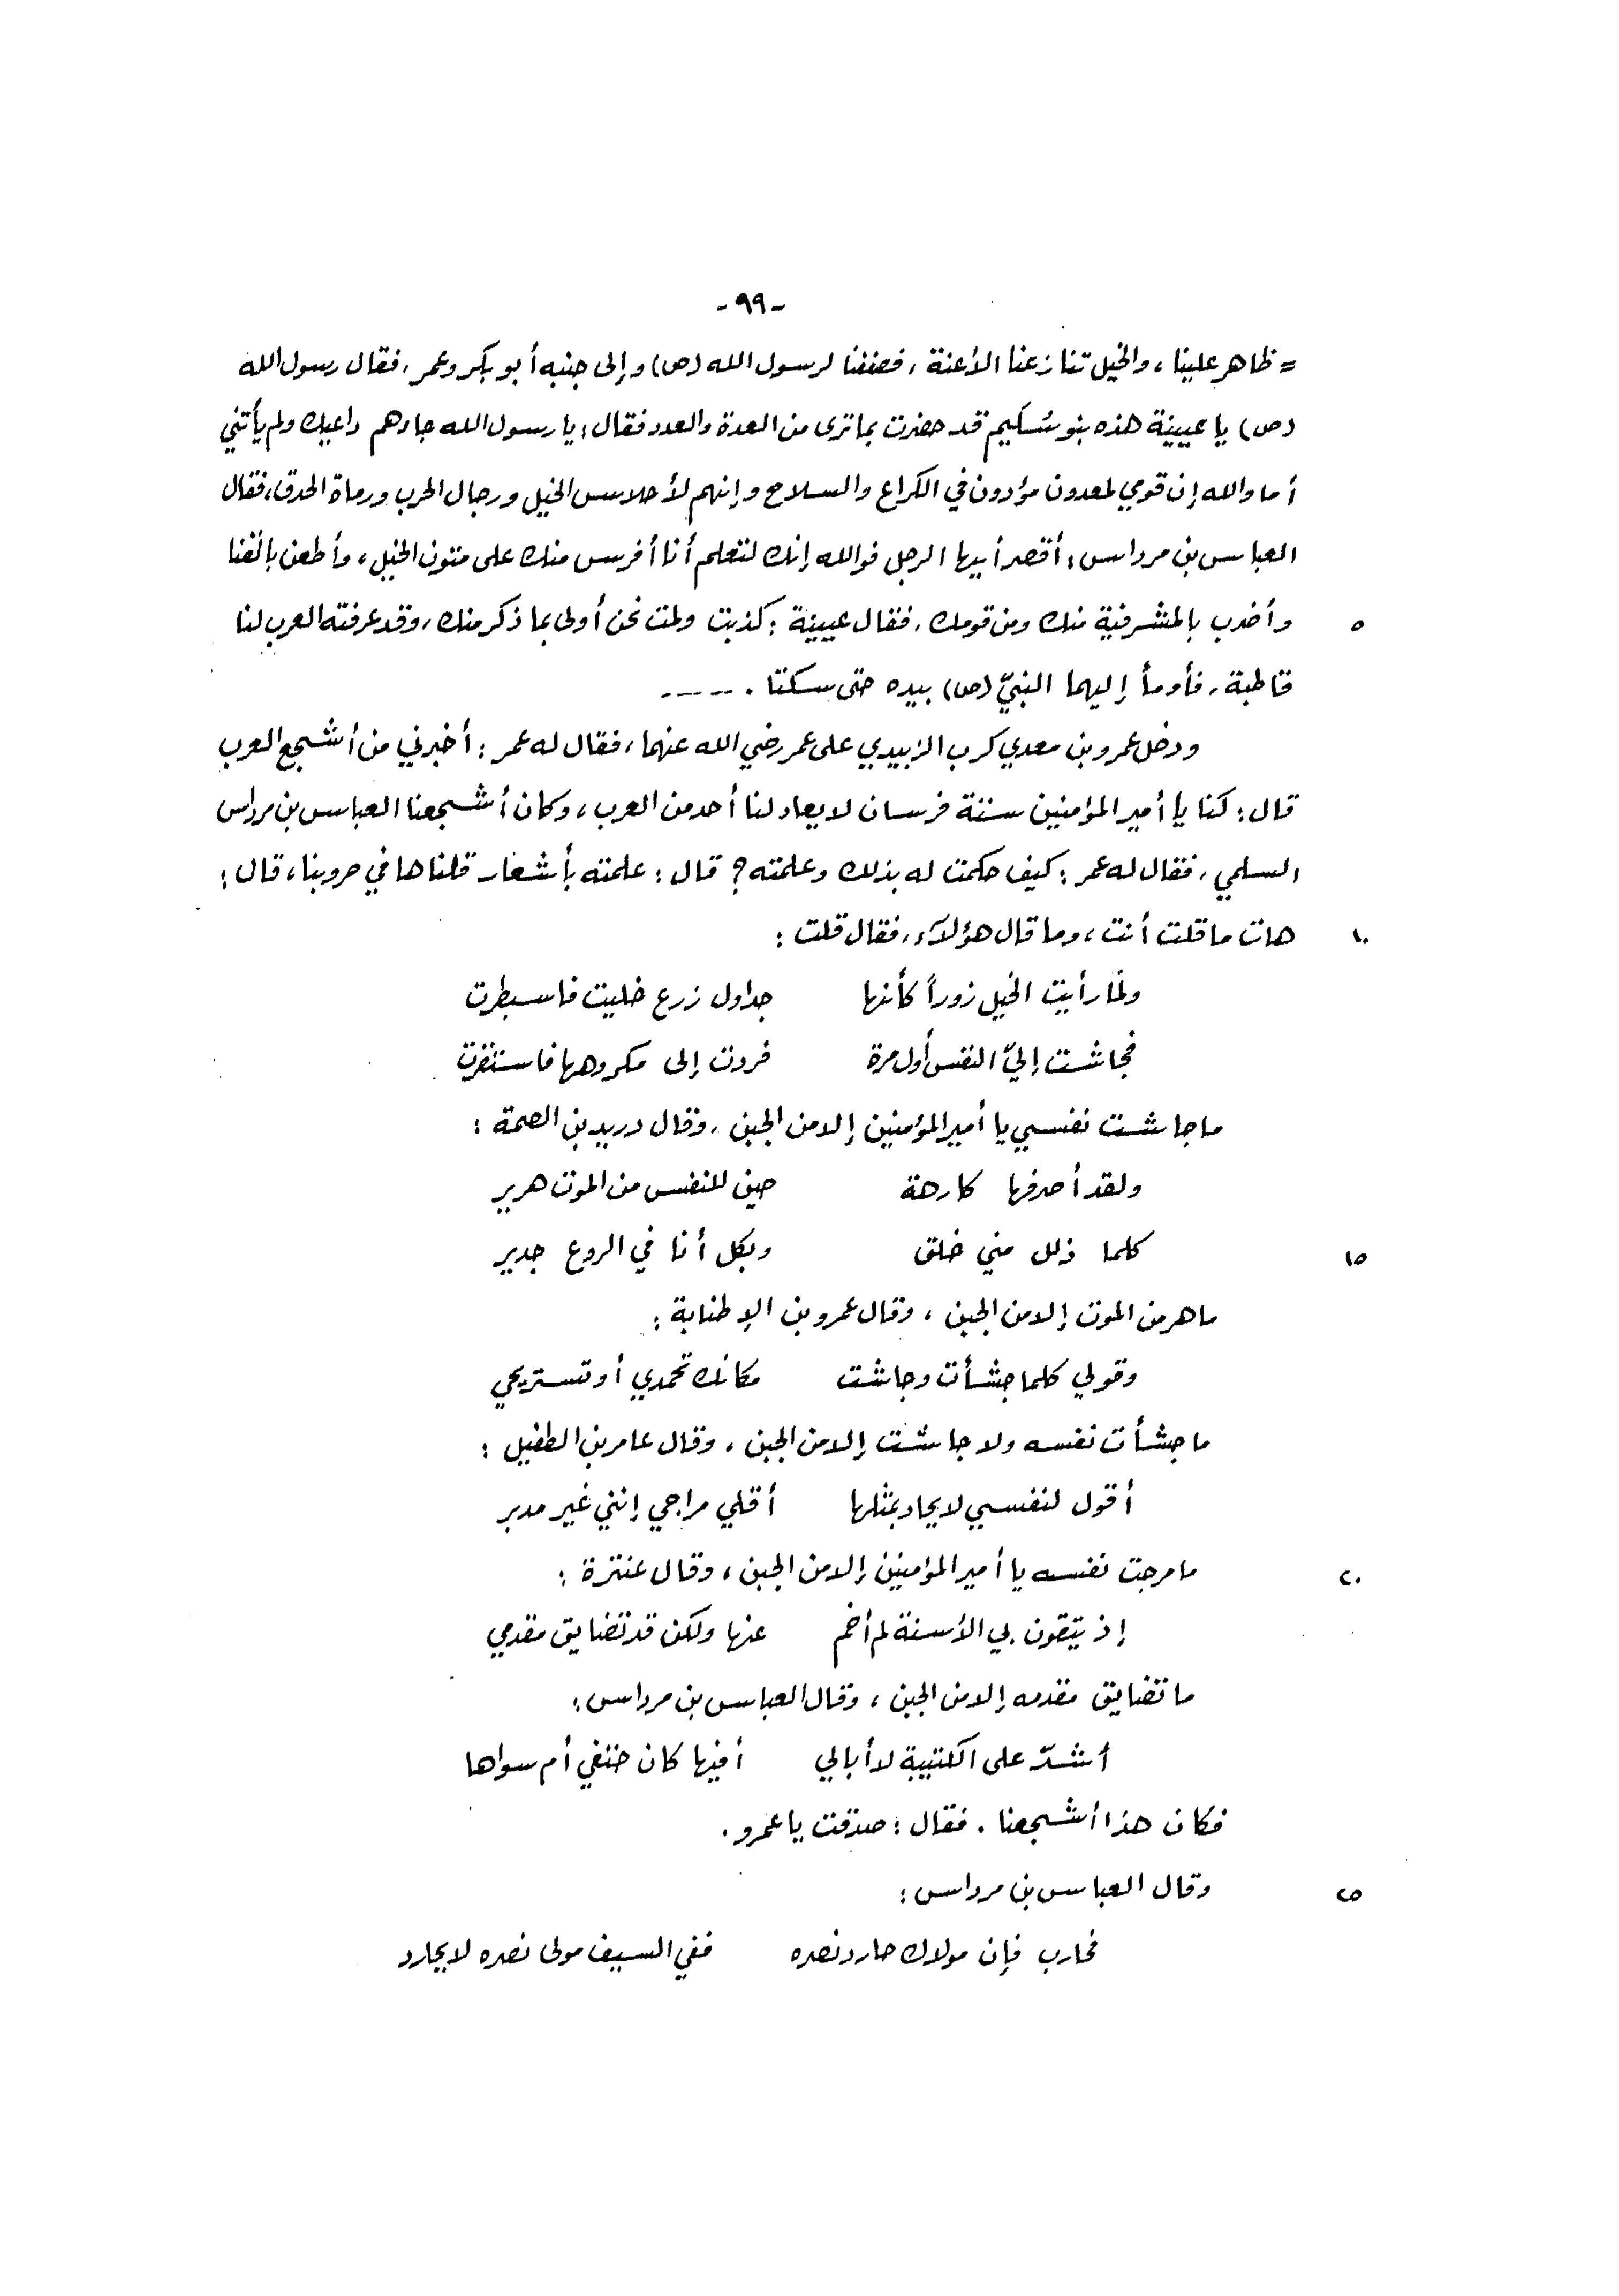 -٩٩-
= ظاهر علينا، والخيل تنازعنا الأعنة، فصففنا لرسول الله (ص) وإلى جنبه أبو بكر وعمر، فقال رسول الله
(ص) يا عيينة هذه بنو سُليم قد حضرت بما ترى من العدة والعدد فقال: يا رسول الله جاءهم داعيك ولم يأتني
أما والله إن قومي لمعدون مؤدون في الكراع والسلاح وإنهم لأحلاس الخيل ورجال الحرب ورماة الحدق، فقال
العباس بن مرداس: أقصر أيها الرجل فوالله إنك لتعلم أنا أفرس منك على متون الخيل، وأطعن بالقنا
٥ وأضرب بالمشرفية منك ومن قومك، فقال عيينة: كذبت ولمت نحن أولى بما ذكر منك، وقد عرفته العرب لنا
قاطبة، فأومأ إليهما النبيّ (ص) بيده حتى سكتا. ----
ودخل عمرو بن معدي كرب الزبيدي على عمر رضي الله عنهما، فقال له عمر: أخبرني من أشجع العرب
قال: كنا يا أمير المؤمنين ستة فرسان لا يعادلنا أحد من العرب، وكان أشجعنا العباس بن مرداس
السلمي، فقال له عمر: كيف حكمت له بذلك وعلمته؟ قال: علمته بأشعار قلناها في حروبنا، قال:
١٠ هات ما قلت أنت، وما قال هؤلآء، فقال قلت:
ولمّا رأيت الخيل زوراً كأنها جداول زرع خليت فاسبطرت
فجاشت إليّ النفس أول مرة فردت إلى مكروهها فاستقرت
ما جاشت نفسي يا أمير المؤمنين إلا من الجبن، وقال دريد بن الصمة:
ولقد أصرفها كارهة حين للنفس من الموت هرير
١٥ كلما ذلك مني خلق وبكل أنا في الروع جدير
ما هر من الموت إلا من الجبن، وقال عمرو بن الإطنابة:
وقولي كلما جشأت وجاشت مكانك تحمدي أو تستريحي
ما جشأت نفسه ولا جاشت إلا من الجبن، وقال عامر بن الطفيل:
أقول لنفسي لا يجاد بمثلها أقلي مراحي إنني غير مدبر
٢٠ ما مرحت نفسه يا أمير المؤمنين إلا من الجبن، وقال عنترة:
إذ يتقون بي الأسنة لم أخم عنها ولكن قد تضايق مقدمي
ما تضايق مقدمه إلا من الجبن، وقال العباس بن مرداس:
أشدّ على الكتيبة لا أبالي أفيها كان حتفي أم سواها
فكان هذا أشجعنا. فقال: صدقت يا عمرو.
٢٥ وقال العباس بن مرداس:
فحارب فإن مولاك حارد نصره ففي السيف مولى نصره لا يحارد